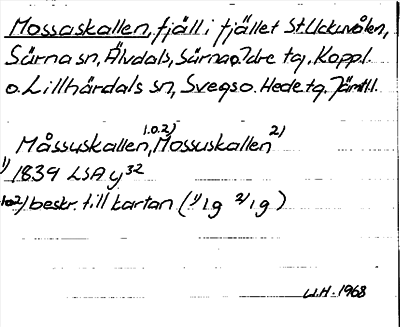 Mossaskallen, fjäll i fjället St. Uckuvålen,
Särna sn, Älvdals, Särna o. Idre tg, Koppl.
o. Lillhärdals sn, Svegs o. Hede tg. Jämtl.
Måssuskallen, 1.o.2) Mossuskallen 2)
1) 1839 LSA y 32
1.o.2) beskr. till kartan (1) 1g 2) 1g)
W.H. 1968